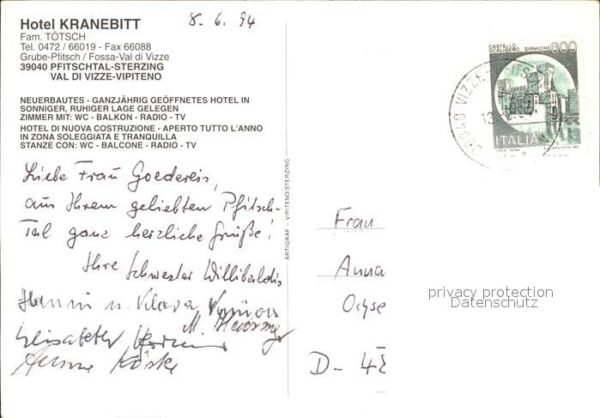 Hotel KRANEBITT
Fam. TÖTSCH
Tel. 0472 / 66019 - Fax 66088
Grube-Pfitsch / Fossa-Val di Vizze
39040 PFITSCHTAL-STERZING
VAL DI VIZZE-VIPITENO
8. 6. 94
NEUERBAUTES - GANZJÄHRIG GEÖFFNETES HOTEL IN
SONNIGER, RUHIGER LAGE GELEGEN
ZIMMER MIT: WC - BALKON - RADIO - TV
HOTEL DI NUOVA COSTRUZIONE - APERTO TUTTO L'ANNO
IN ZONA SOLEGGIATA E TRANQUILLA
STANZE CON: WC - BALCONE - RADIO - TV
Liebe Frau Goedereis,
aus Ihrem geliebten Pfitsch-
Tal ganz herzliche Grüße!
Ihre Schwester Willibaldis
Hanni u. Klara
M.
Elisabeth
ARTIGRAF - VIPITENO-STERZING
CASTELLO
SCALIGERO SIRMIONE
800
ITALIA
39040 VIZZE-PFITSC
Frau
Anna
Ochse
D-
privacy protection
Datenschutz